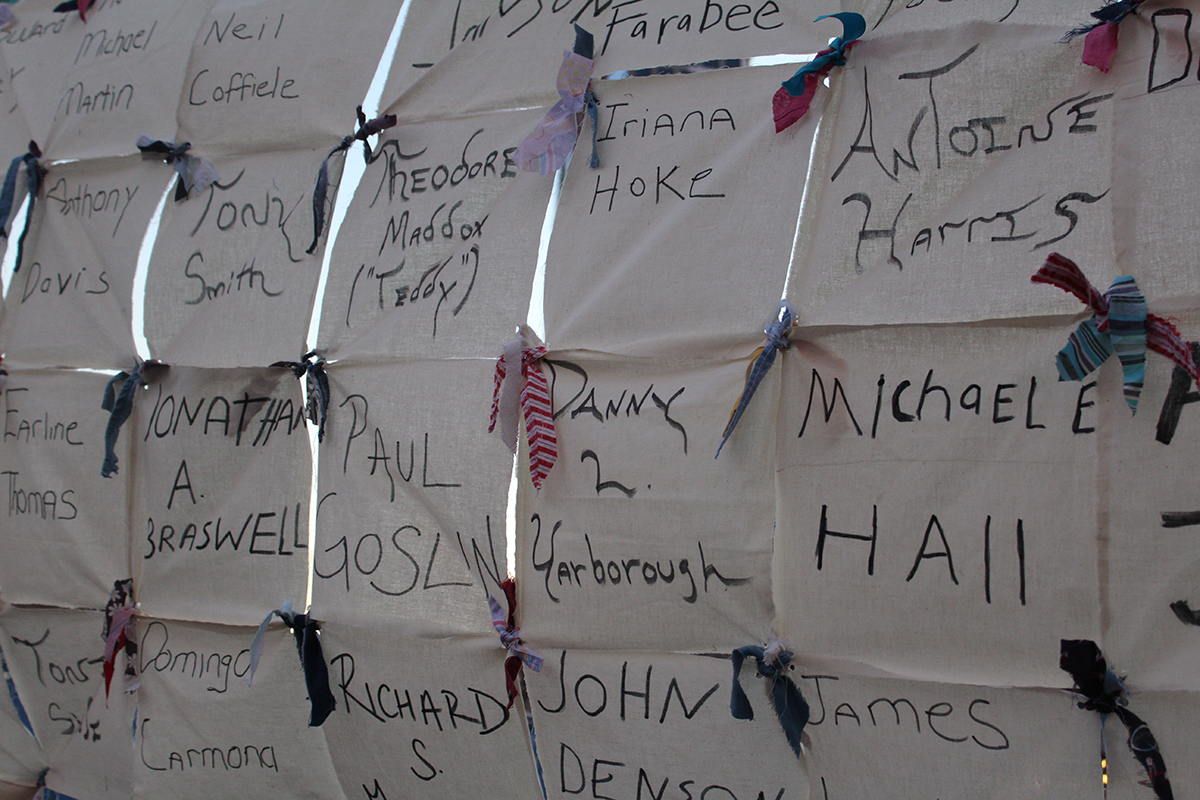 Michael
Martin
Neil
Coffiele
Farabee
Anthony
Davis
Tony
Smith
Theodore
Maddox
("Teddy")
Iriana
Hoke
AnToinE
HarrIS
Earline
Thomas
JONATHAN
A.
BRASWELL
PAUL
GOSLIN
DANNY
L.
Yarborough
MIchaEL E
HAll
Domingo
Carmona
RICHARD
S.
JOHN
DENSON
James